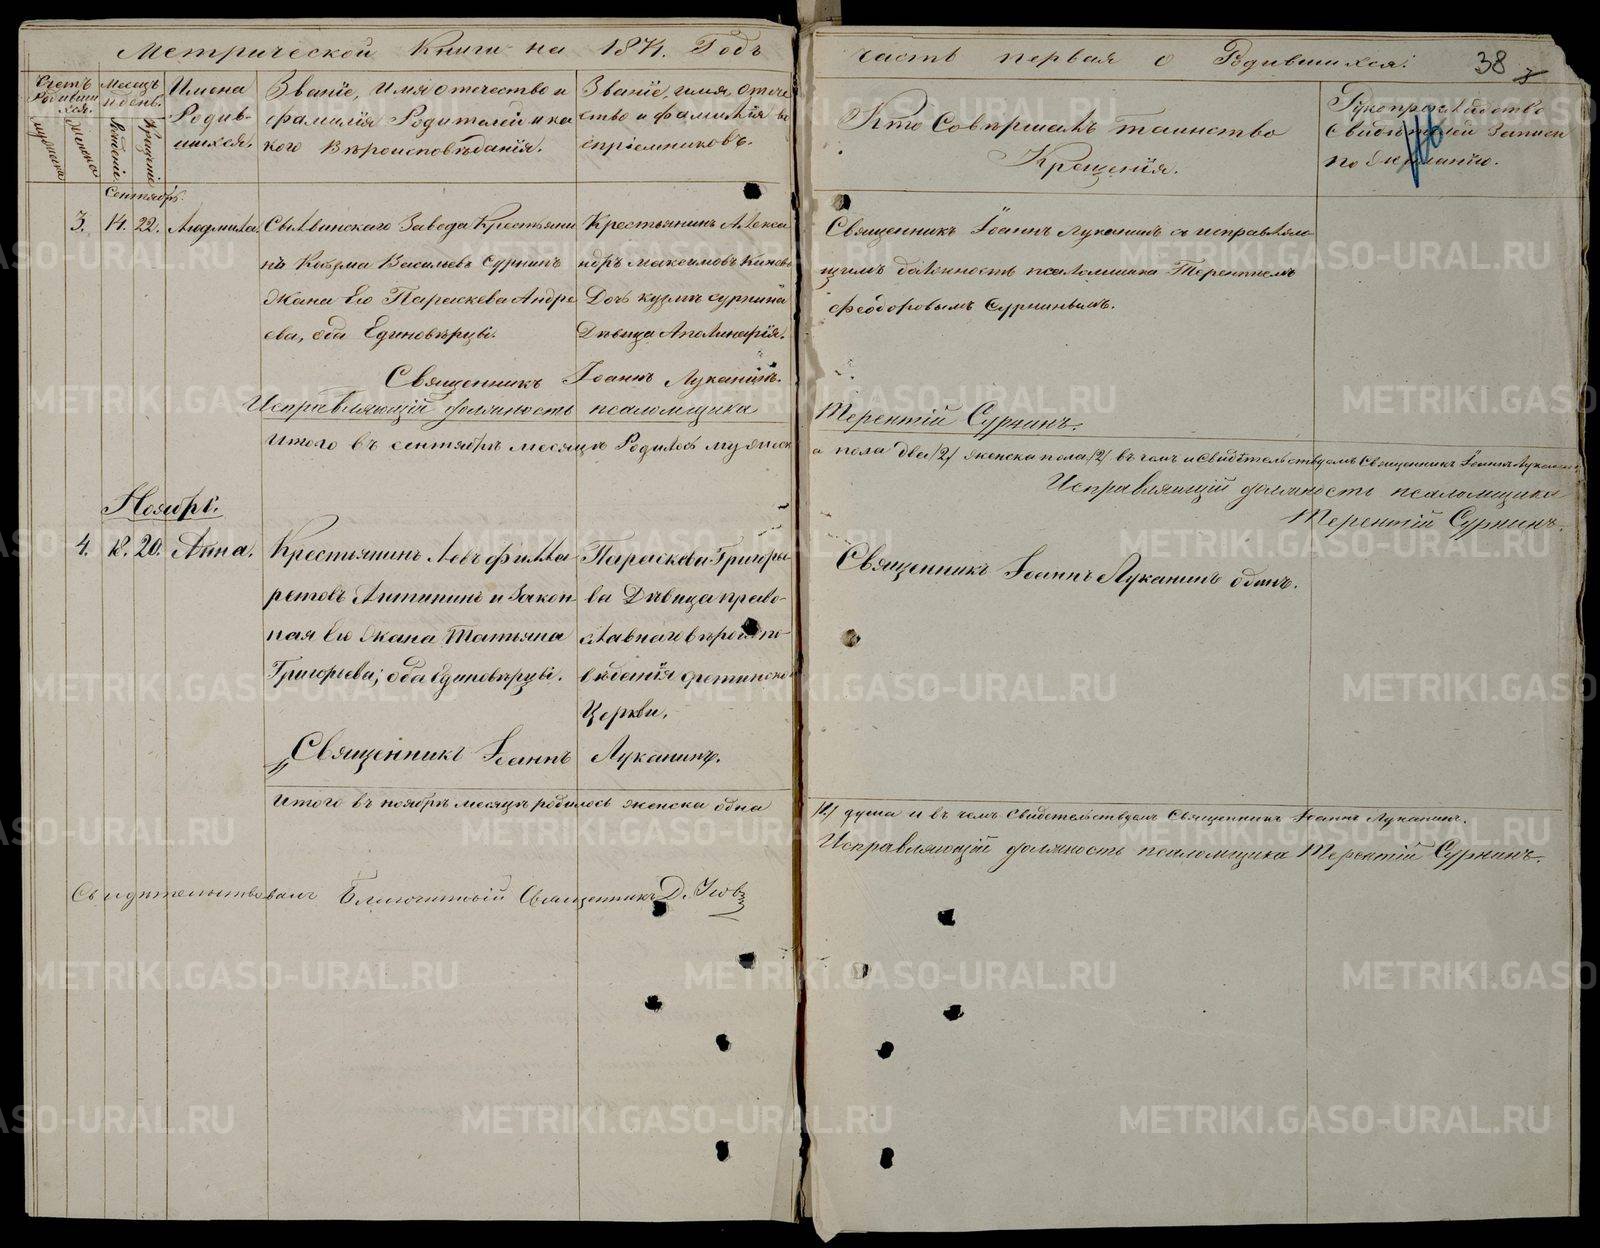 Метрической Книги на 1871. Годъ
часть первая о Родившихся.
38
Счетъ Родивши хся.
мужеска
женска
Месяцъ и день.
Рожденіе
Крещеніе
Имена
Родив-
шихся.
Званіе, Имя отечество и
фамилія Родителей и ка
кого Вѣроисповѣданія.
Званіе, имя отече
ство и фамилія во
спріемниковъ.
Кто Совершалъ таинство
Крещенія.
Рукоприкладство
Свидѣтелей Записи
по желанію.
Сентябрь.
3. 14. 22. Людмила.
Сылвинскаго Завода Крестьяни
нъ Козма Васильевъ Сурнинъ
Жена Его Параскева Андре
ева, оба Единовѣрцы.
Крестьянинъ Алекса
ндръ Максимовъ
Дочь кузмы сурнина
Дѣвица Аполинарія.
Священникъ Іоаннъ Луканинъ съ исправляю
щимъ должность псаломщика Терентіемъ
Феодоровымъ Сурнинымъ.
Священникъ Іоаннъ Луканинъ.
Исправляющій должность псаломщика
Терентій Сурнинъ.
Итого въ сентябрѣ месяцѣ Родилось мужеск
а пола две /2/ женска пола /2/ въ чемъ и Свидѣтельствуемъ Священникъ Іоаннъ Луканинъ
Исправляющій должность псаломщика
Терентій Сурнинъ.
Ноябрь.
4. 18. 20. Анна.
Крестьянинъ Левъ Фила
ретовъ Антипинъ и Закон
ная его жена Татьяна
Григорьева; оба единовѣрцы.
Параскева Григорье
ва Дѣвица право-
славнаго вѣроиспо-
вѣданія
Церкви.
Священникъ Іоаннъ Луканинъ одинъ.
Священникъ Іоаннъ Луканинъ.
Итого въ ноябрѣ месяцѣ родилось женска одна
/1/ душа и въ чемъ Свидетельствуемъ Священникъ Іоаннъ Луканинъ.
Исправляющій должность псаломщика Терентій Сурнинъ.
Свидѣтельствовалъ Благочинный Священникъ Д.
METRIKI.GASO-URAL.RU